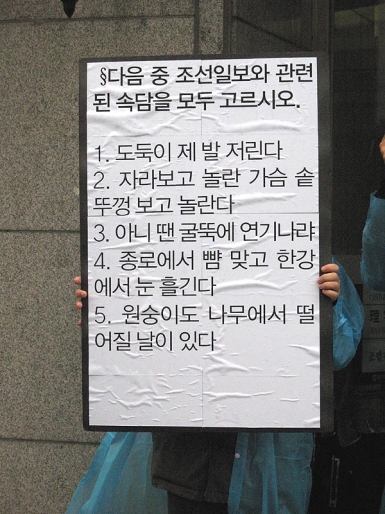 §다음 중 조선일보와 관련
된 속담을 모두 고르시오.
1. 도둑이 제 발 저린다
2. 자라보고 놀란 가슴 솥
뚜껑 보고 놀란다
3. 아니 땐 굴뚝에 연기나랴
4. 종로에서 뺨 맞고 한강
에서 눈 흘긴다
5. 원숭이도 나무에서 떨
어질 날이 있다